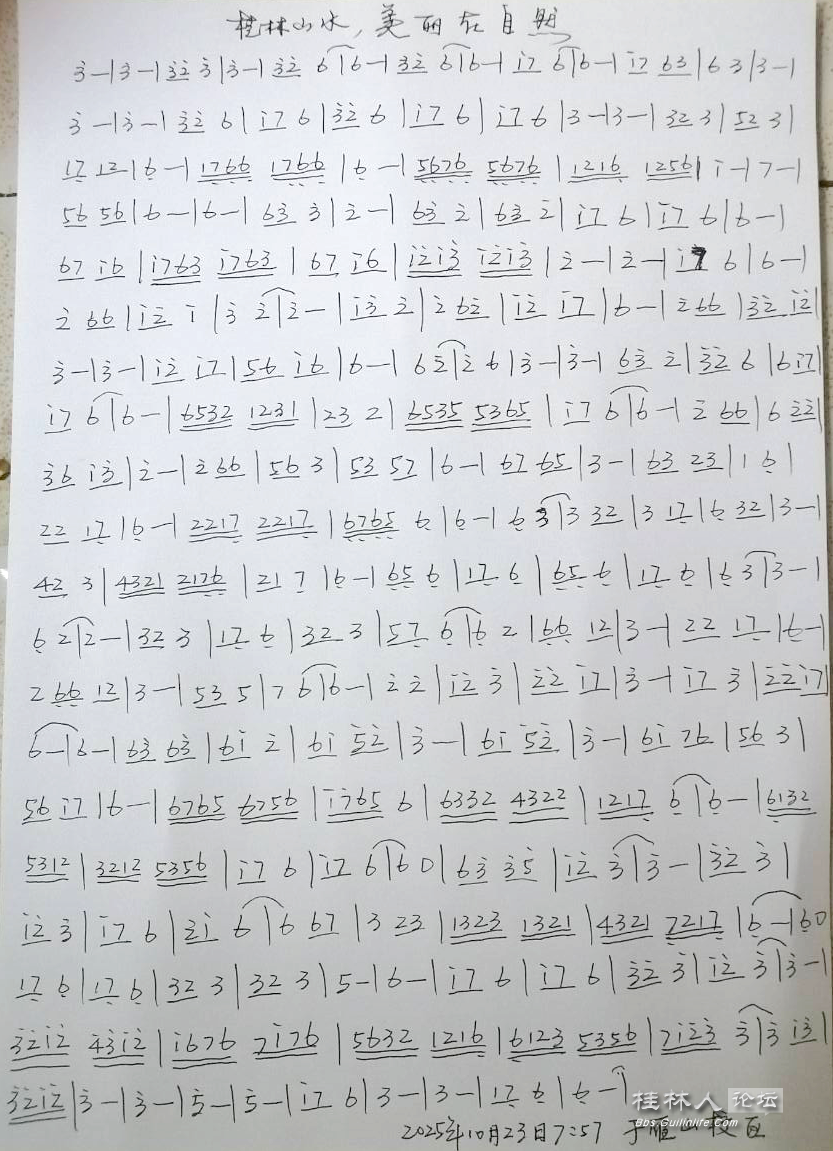 桂林山水,美丽在自然
3̇ - | 3̇ - | 3̇2̇ 3̇ | 3̇ - | 3̇2̇ 6 | 6 - | 3̇2̇ 6 | 6 - | i7 6 | 6 - | i7 63 | 6 3 | 3 - |
3̇ - | 3̇ - | 3̇2̇ 6 | i7 6 | 3̇2̇ 6 | i7 6 | i7 6 | 3 - | 3 - | 32 3 | 52 3 |
17 12 | 6 - | 1766 1766 | 6 - | 5676 5676 | 1216 1256 | i - | 7 - |
56 56 | 6 - | 6 - | 63̇ 3̇ | 2̇ - | 63̇ 2̇ | 63̇ 2̇ | i7 6 | i7 6 | 6 - |
67 i6 | i763 i763 | 67 i6 | i2̇i3̇ i2̇i3̇ | 2̇ - | 2̇ - | i7 6 | 6 - |
2̇ 66 | i2̇ i | 3̇ 2̇ | 2̇ - | i3̇ 2̇ | 2̇ 62̇ | i2̇ i7 | 6 - | 2̇ 66 | 3̇2̇ i2̇ |
3̇ - | 3̇ - | i2̇ i7 | 56 i6 | 6 - | 6 2̇ | 2̇ 6 | 3̇ - | 3̇ - | 63̇ 2̇ | 3̇2̇ 6 | 6 i7 |
i7 6 | 6 - | 6532 1231 | 23 2 | 6535 5365 | i7 6 | 6 - | 2̇ 66 | 6 2̇2̇ |
3̇6 i3̇ | 2̇ - | 2̇ 66 | 56 3 | 53 57 | 6 - | 67 65 | 3 - | 63 23 | 1 6 |
22 17 | 6 - | 2217 2217 | 6765 6 | 6 - | 6 3 | 3 32 | 3 17 | 6 32 | 3 - |
42 3 | 4321 2176 | 21 7 | 6 - | 65 6 | 17 6 | 65 6 | 17 6 | 6 3 | 3 - |
6 2 | 2 - | 32 3 | 17 6 | 32 3 | 57 6 | 6 2 | 66 12 | 3 - | 22 17 | 6 - |
2 66 12 | 3 - | 53 5 | 7 6 | 6 - | 2̇ 2̇ | i2̇ 3̇ | 2̇2̇ i7 | 3̇ - | i7 3 | 2̇2̇i7 |
6 - | 6 - | 63̇ 63̇ | 6i 2̇ | 6i 5̇2̇ | 3̇ - | 6i 5̇2̇ | 3̇ - | 6i 76 | 56 3 |
56 i7 | 6 - | 6765 6756 | i765 6 | 6332 4322 | 1217 6 | 6 - | 6132
5312 | 3212 5356 | i7 6 | i7 6 | 6 0 | 63̇ 3̇5̇ | i2̇ 3̇ | 3̇ - | 3̇2̇ 3̇ |
i2̇ 3̇ | i7 6 | 2̇i 6 | 6 67 | 3 23 | 1323 1321 | 4321 7217 | 6 - | 60
17 6 | 17 6 | 32 3 | 32 3 | 5 - | 6 - | i7 6 | i7 6 | 3̇2̇ 3̇ | i2̇ 3̇ | 3̇ - |
3̇2̇i2̇ 4̇3̇i2̇ | i676 7i76 | 5632 1216 | 6123 5356 | 7i2̇3̇ 3̇ | 3̇ i3̇ |
3̇2̇i2̇ | 3̇ - | 3̇ - | 5̇ - | 5̇ - | i7 6 | 3 - | 3 - | 17 6 | 6 - |
2025年10月23日7:57 于雁山校区
桂林人论坛
Bbs.Guilinlife.Com